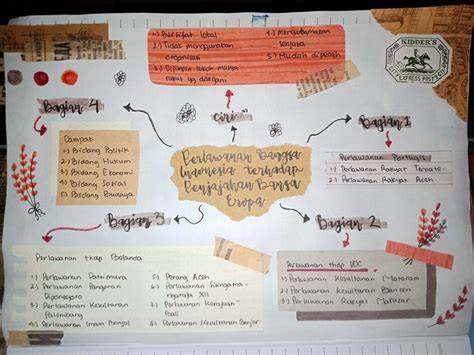 1.) Bersifat lokal
2.) Tidak menggunakan
organisasi
3.) Dipimpin tokoh masya
rakat yg disegani
4.) Mengutamakan
senjata
5.) Mudah dipecah
KIDDER'S
CITY EXPRESS POST
Bagian 4
Ciri"
Bagian 1
Dampak
1.) Bidang Politik
2.) Bidang Hukum
3.) Bidang Ekonomi
4.) Bidang Sosial
5.) Bidang Budaya
Perlawanan Bangsa
Indonesia terhadap
Penjajahan Bansa
Eropa
Perlawanan Portugis
1.) Perlawanan Rakyat Ternate
2.) Perlawanan Rakyat Aceh
Bagian 3
Bagian 2
Perlawanan thdp Belanda
1.) Perlawanan Patimura
2.) Perlawanan Pangeran
Diponegoro
3.) Perlawanan Kesultanan
Palembang
4.) Perlawanan Imam Bonjol
5.) Perang Aceh
6.) Perlawanan Sisingama-
ngaraja XII
7.) Perlawanan Kerajaan
Bali
8.) Perlawanan Kesultanan Banjar
Perlawanan thdp VOC
1.) Perlawanan Kesultanan Mataram
2.) Perlawanan Kesultanan Banten
3.) Perlawanan Rakyat Makasar